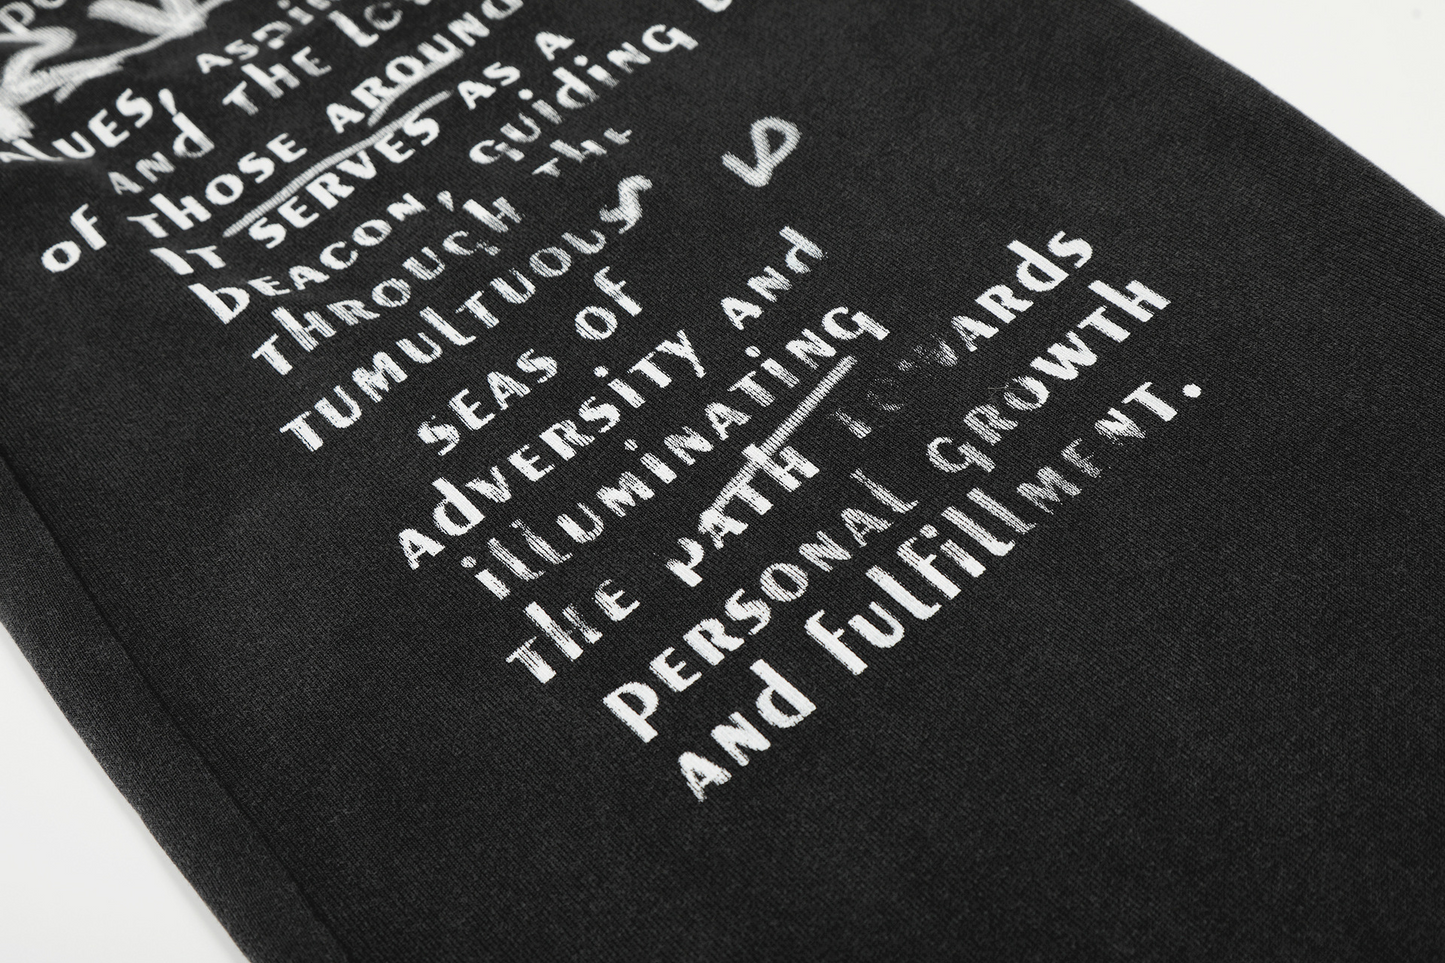 AND THE
OF THOSE AROUND
IT SERVES AS A
BEACON, GUIDING
THROUGH THE
TUMULTUOUS
SEAS OF
ADVERSITY AND
ILLUMINATING
THE PATH TOWARDS
PERSONAL GROWTH
AND FULFILLMENT.